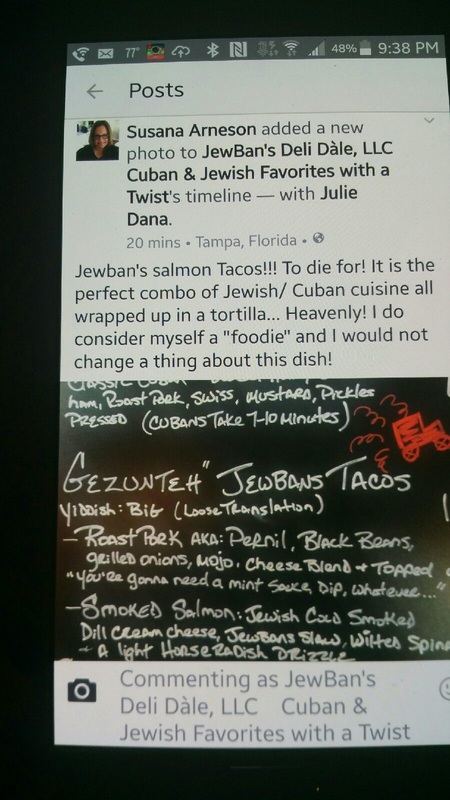 77° 48% 9:38 PM
Posts
Susana Arneson added a new
photo to JewBan's Deli Dàle, LLC
Cuban & Jewish Favorites with a
Twist's timeline — with Julie
Dana.
20 mins • Tampa, Florida •
Jewban's salmon Tacos!!! To die for! It is the
perfect combo of Jewish/ Cuban cuisine all
wrapped up in a tortilla... Heavenly! I do
consider myself a "foodie" and I would not
change a thing about this dish!
Ham, Roast Pork, Swiss, Mustard, Pickles
PRESSED (CUBANS TAKE 7-10 Minutes)
GEZUNTEH" JEWBANS TACOS
Yiddish: BIG (Loose Translation)
- Roast Pork AKA: Pernil, Black Beans,
grilled onions, Mojo, Cheese Blend & Topped
"you're gonna need a mint Sauce, Dip, whatever..."
- Smoked Salmon: Jewish Cold Smoked
Dill Cream cheese, Jewbans Slaw, Wilted
& A light HORSERADISH DRIZZLE
Commenting as JewBan's
Deli Dàle, LLC Cuban &
Jewish Favorites with a Twist